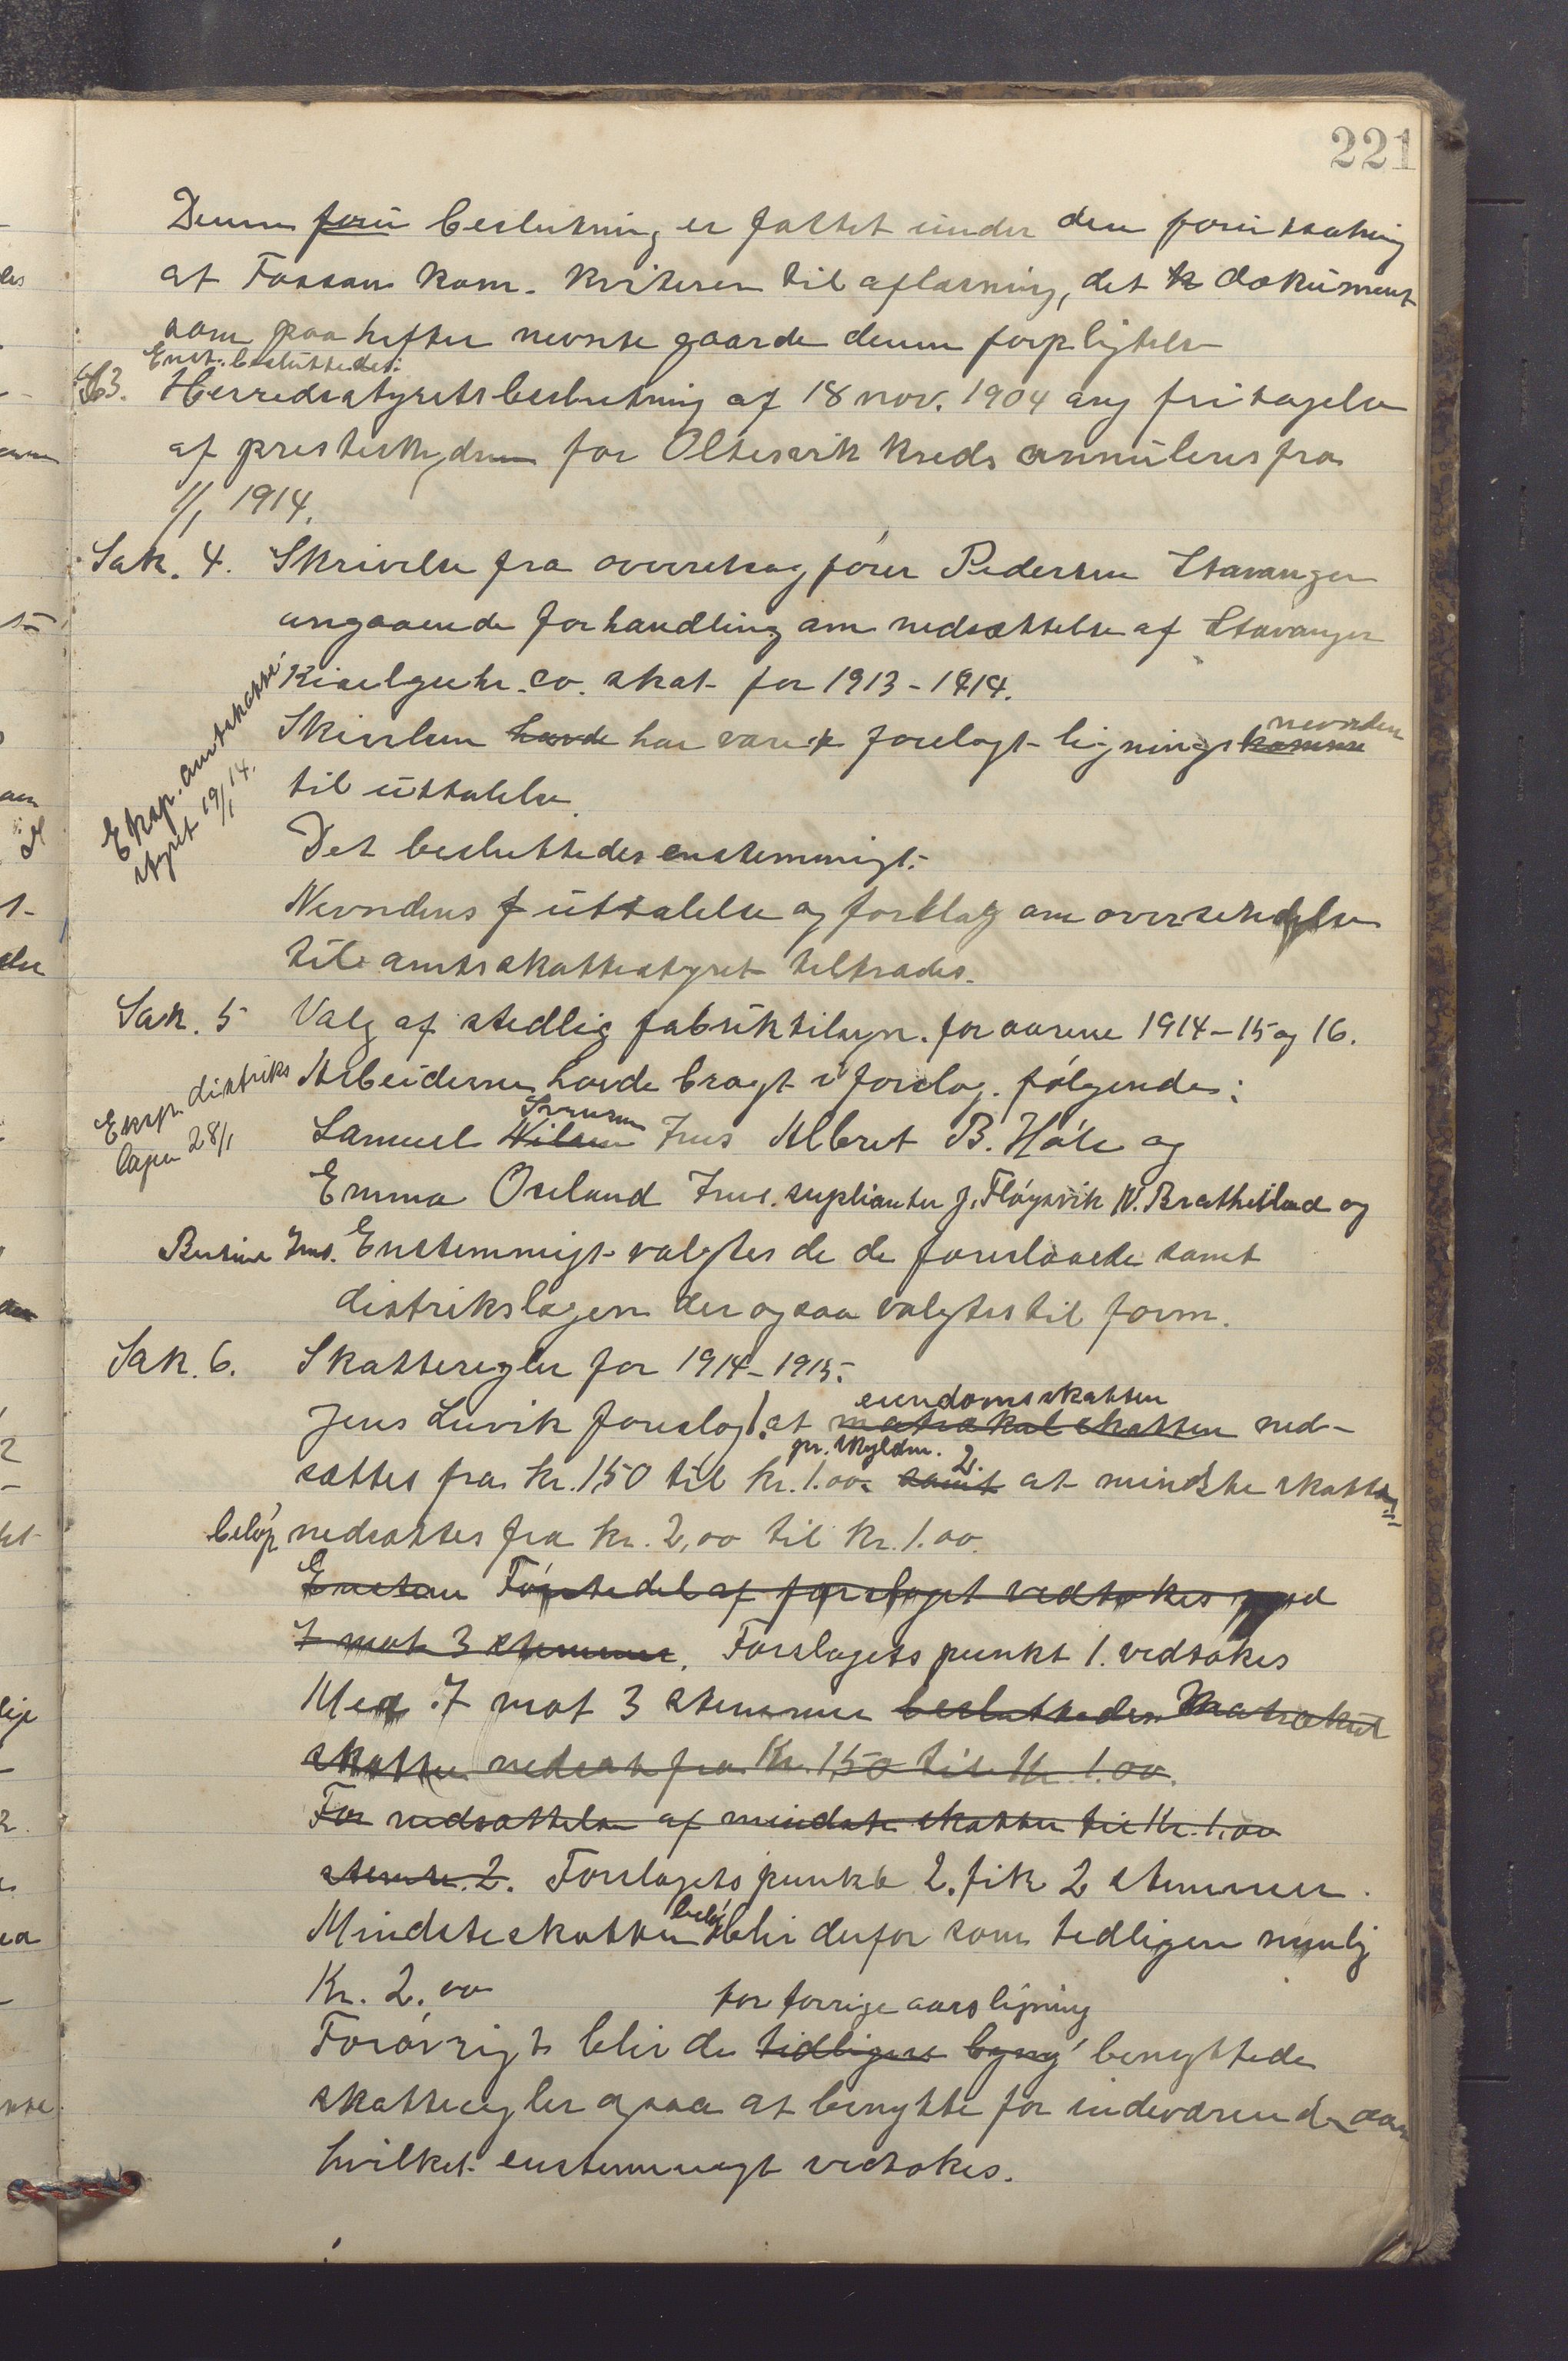 221
Denne foru beslutning er fattet under den forutsætning
at Fossan kom. kviterer til aflæsning, det k dokument
som paahefter nevnte gaarde denne forpligtelse
Enst. besluttedes:
S. 3. Herredsstyrets beslutning af 18 nov. 1904 ang fritagelse
af presteskydsen for Oltesvik kreds annuleres fra
1/1 1914.
Sak. 4. Skrivelse fra overretssagfører Pedersen Stavanger
angaaende forhandling om nedsættelse af Stavanger
Kiselguhr. co. skat for 1913-1914.
Eksp. amtskatte
styret 19/1 14.
nevnden
Skrivelsen havde har været forelagt lignings komme
til uttalelse.
Det besluttedes enstemmigt:
Nevndens f uttalelse og forslag om oversendelse
til amtsskattestyret tiltrædes.
Sak. 5 Valg af stedlig fabriktilsyn. for aarene 1914-15 og 16.
Eksp. distriks
lægen 28/1
Arbeiderne havde bragt i forslag. følgende:
Samuel Nilsen Ims Albret B. Høle og
Emma Oseland Imsl. suplianter J. Fløysvik N. Brattetland og
Imsl. Enstemmigt valgtes de de foreslaaede samt
distrikslægen der ogsaa valgtes til form.
Sak. 6. Skatteregler for 1914-1915:
eiendomsskatten
Jens Levik foreslog 1. at matrikulskatten ned-
pr. skyldm. 2.
sættes fra kr. 1,50 til kr. 1.00. samt at mindste skatte
beløp nedsættes fra kr. 2,00 til kr. 1.00.
Enstem Første del af forslaget vedtokes med
7 mot 3 stemmer. Forslagets punkt 1. vedtokes
Med 7 mot 3 stemmer besluttedes Matrikul
skatten nedsat fra Kr. 1,50 til Kr. 1.00.
For nedsættelse af mindste skatten til Kr. 1.00
stemte 2. Forslagets punkt 2. fik 2 stemmer.
beløp
Mindsteskatten blir derfor som tedligere nemlig
Kr. 2.00
for forrige aars ligning
Forøvrigt blir de tidligere benyttede
skatteregler ogsaa at benytte for indeværende aar
hvilket enstemmigt vedtokes.